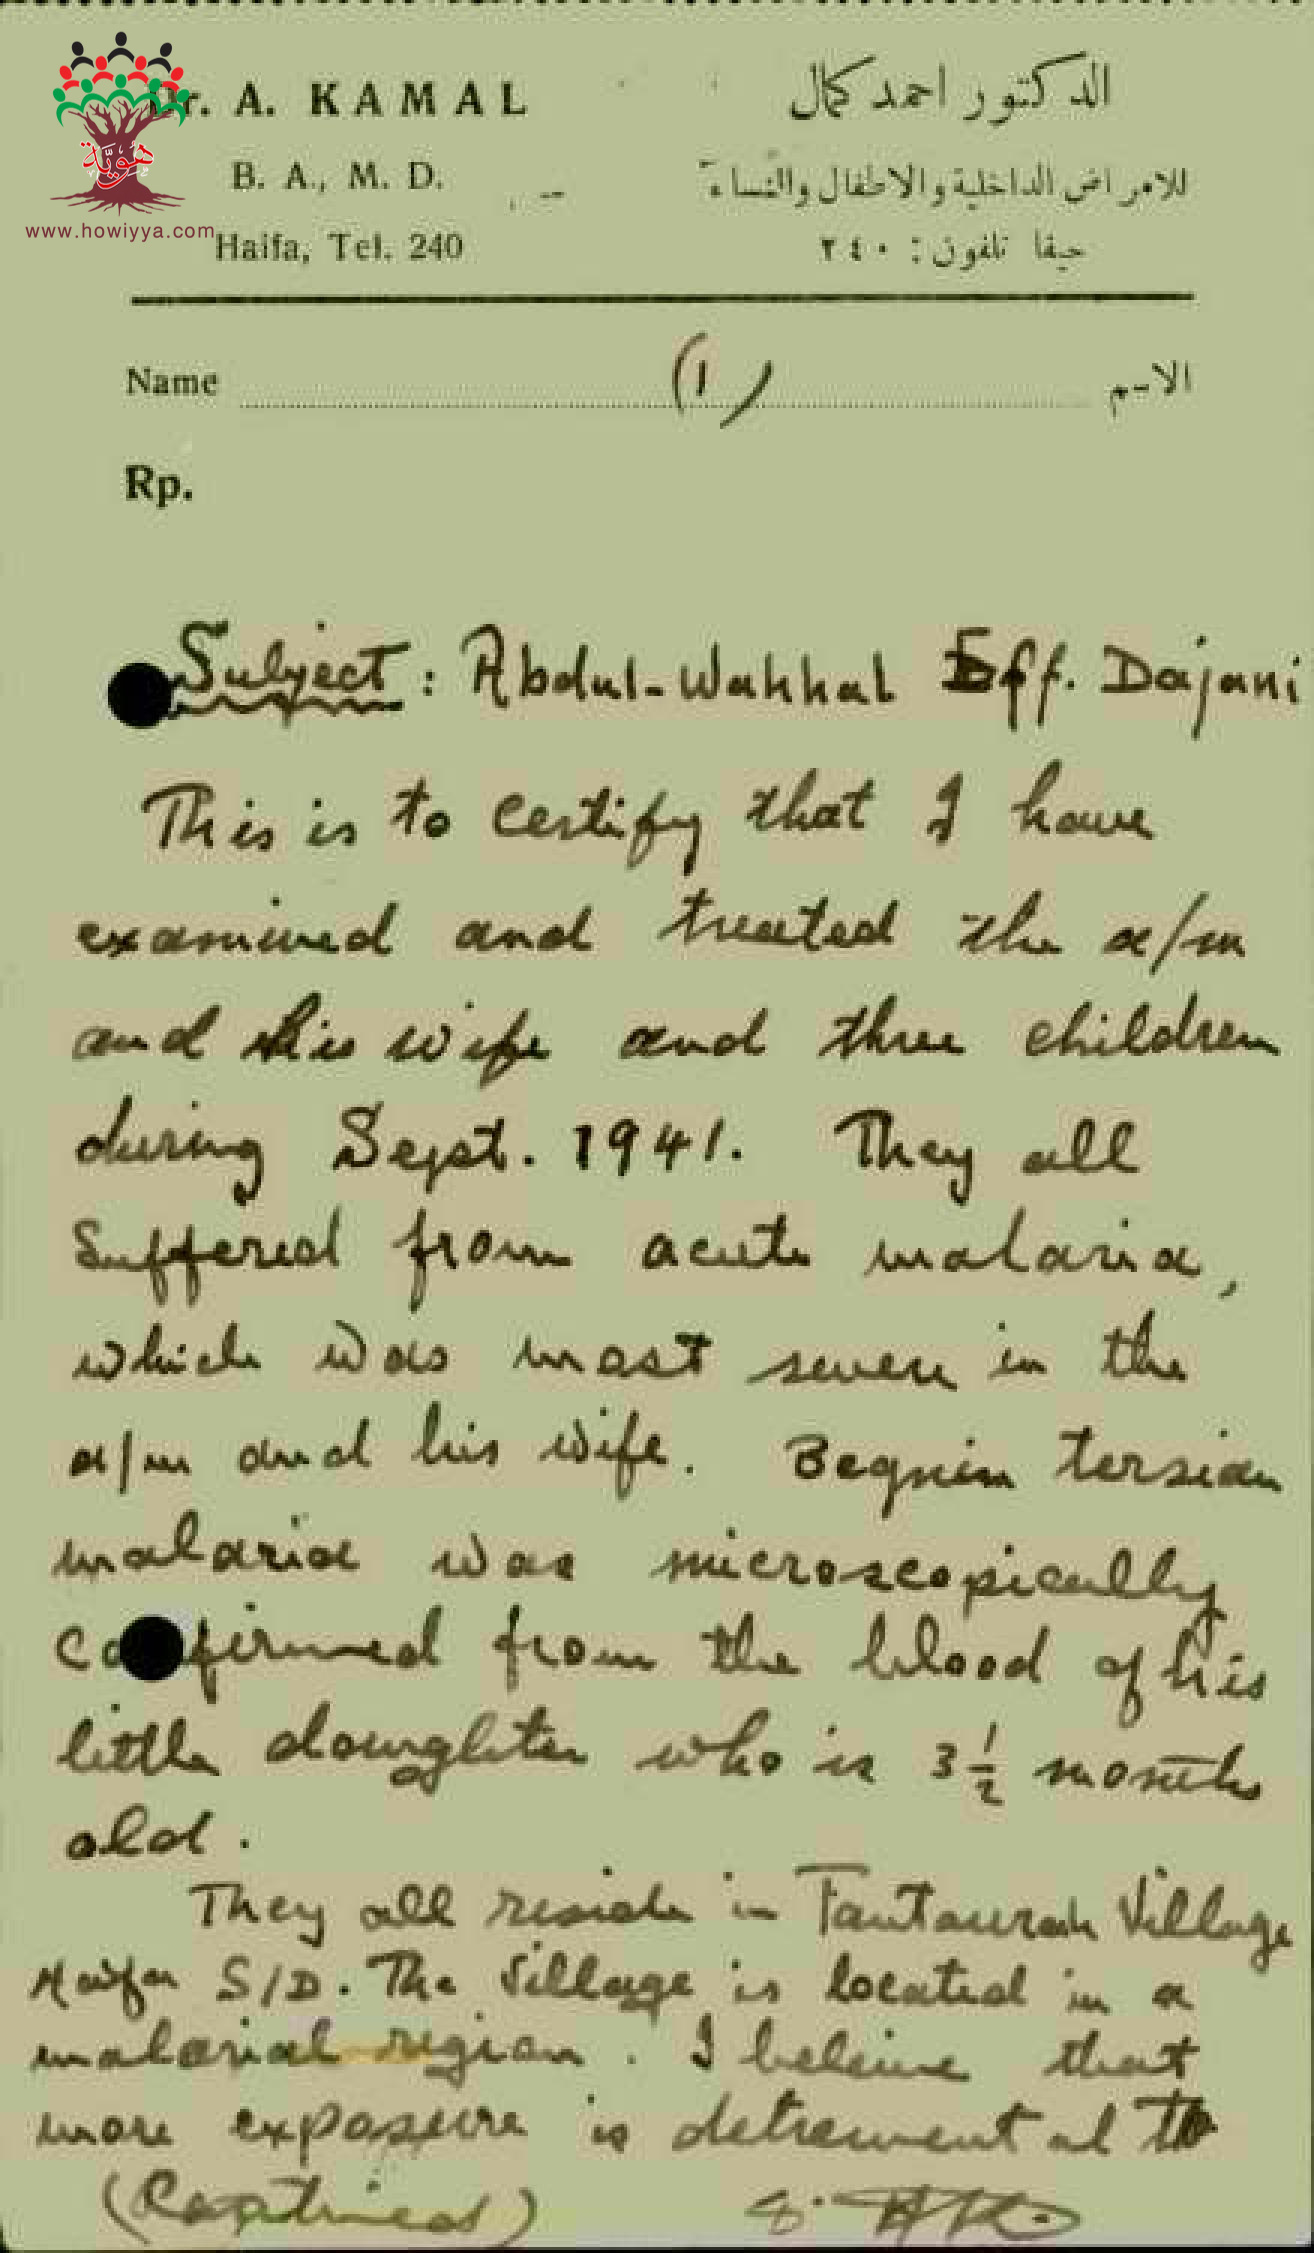 Dr. A. KAMAL
الدكتور احمد كمال
B. A., M. D.
للامراض الداخلية والاطفال والنساء
هوية
www.howiyya.com
Haifa, Tel. 240
حيفا تلفون : ٢٤٠
Name (1) الاسم
Rp.
Subject : Abdul-Wahhab Eff. Dajani
This is to certify that I have
examined and treated the a/m
and his wife and three children
during Sept. 1941. They all
suffered from acute malaria,
which was most severe in the
a/m and his wife. Begnin tersian
malaria was microscopically
confirmed from the blood of his
little daughter who is 3 ½ months
old.
They all reside in Tantaurah Village
Haifa S/D. The Village is located in a
malarial region. I beleive that
more exposure is detremental to
(Continued)